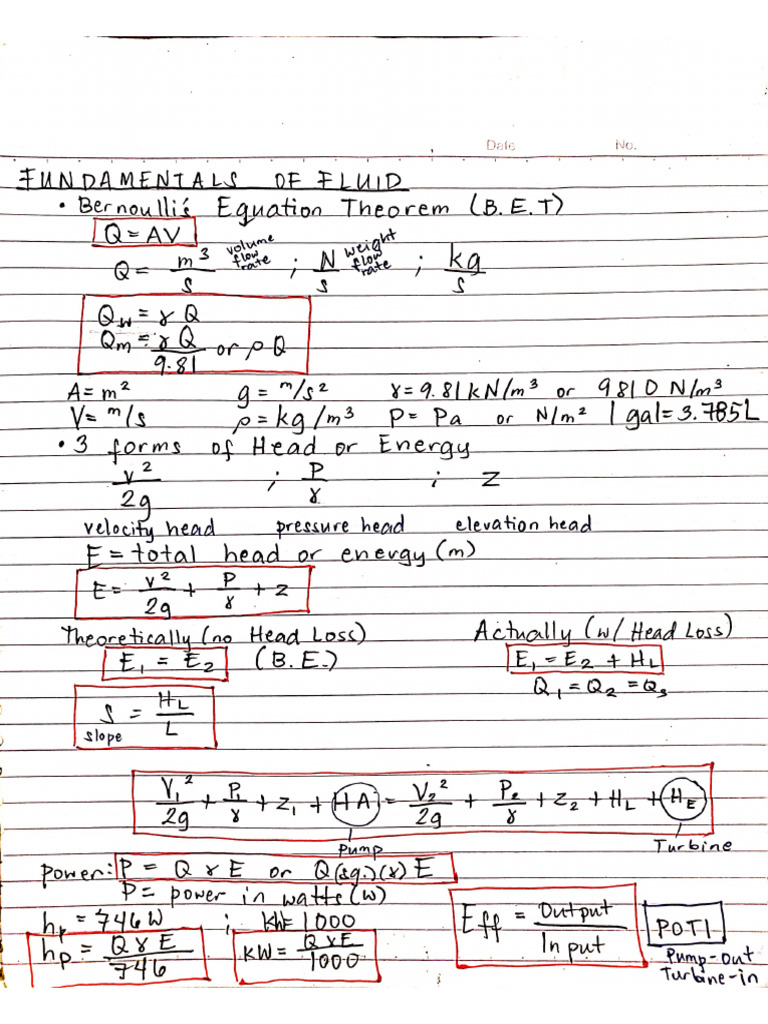 Date No.
FUNDAMENTALS OF FLUID
• Bernoulli's Equation Theorem (B.E.T)
Q = AV
Q = m³/s volume flow rate ; N/s weight flow rate ; kg/s
Qw = γ Q
Qm = γQ/9.81 or ρ Q
A = m² g = m/s² γ = 9.81 kN/m³ or 9810 N/m³
V = m/s ρ = kg/m³ P = Pa or N/m² 1 gal = 3.785L
• 3 forms of Head or Energy
v²/2g ; P/γ ; z
velocity head pressure head elevation head
E = total head or energy (m)
E = v²/2g + P/γ + z
Theoretically (no Head Loss) Actually (w/ Head Loss)
E₁ = E₂ (B.E.) E₁ = E₂ + HL
Q₁ = Q₂ = Q₃
S = HL/L
slope
V₁²/2g + P₁/γ + z₁ + HA = V₂²/2g + P₂/γ + z₂ + HL + HE
Pump Turbine
power: P = Q γ E or Q(s.g.)(γ) E
P = power in watts (w)
hp = 746 W ; kW = 1000
hp = QγE/746 kW = QγE/1000 Eff = Output/Input POTI
Pump-out
Turbine-in